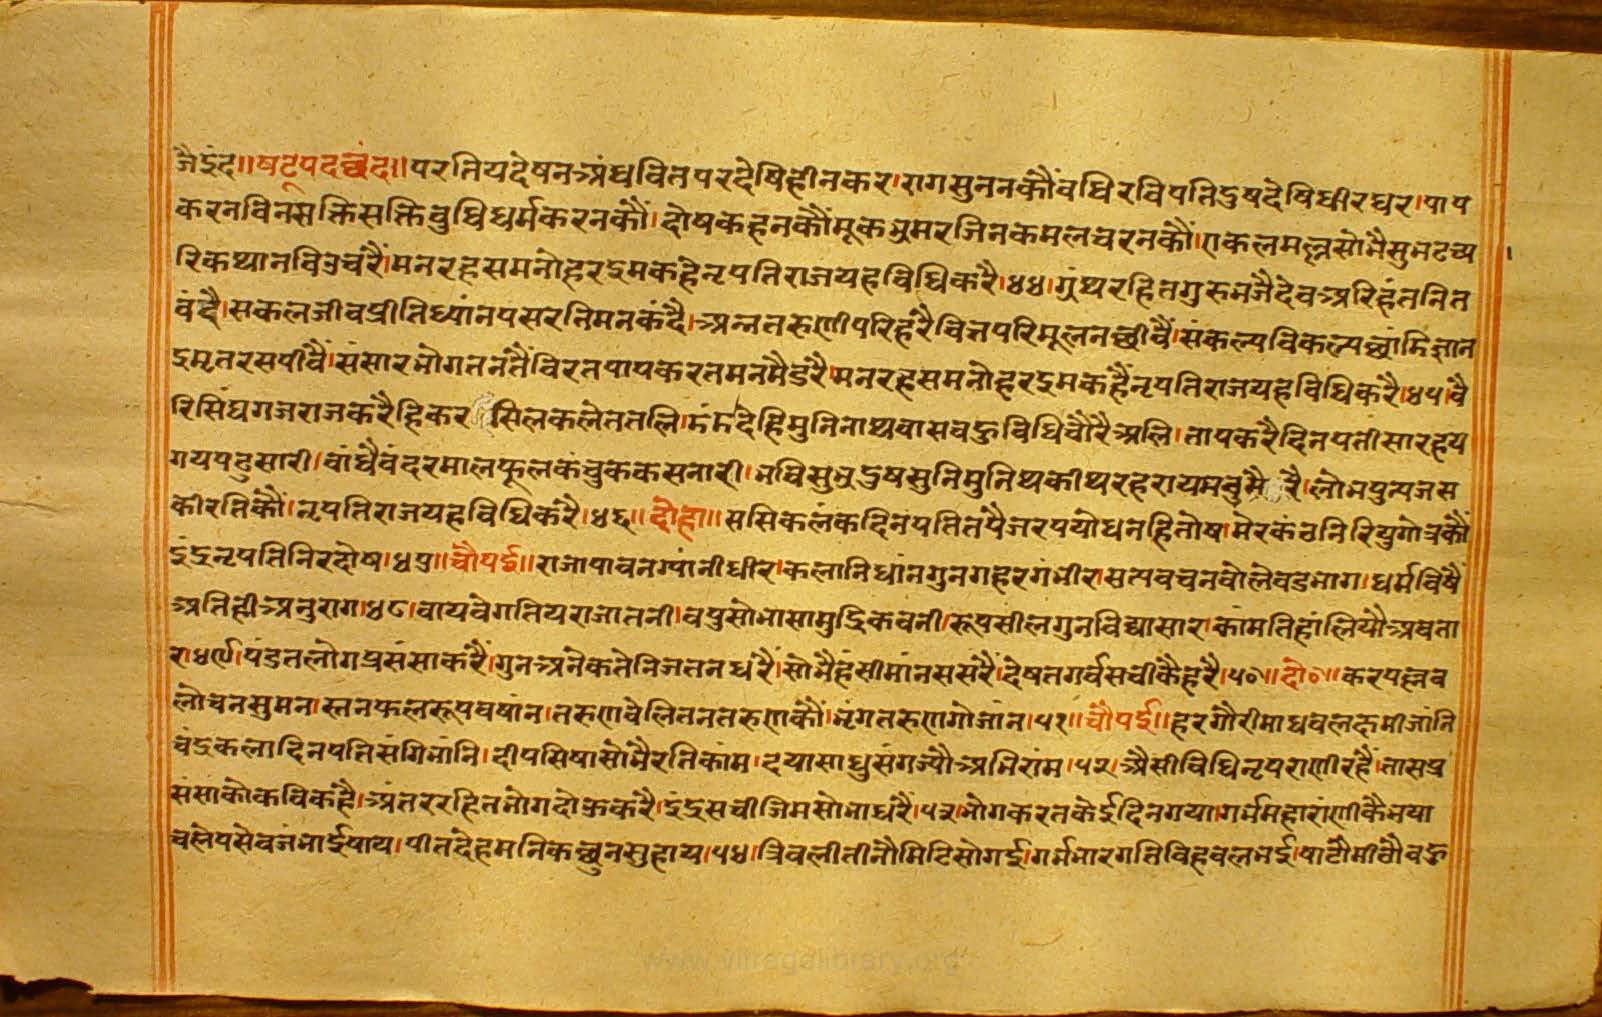 जैइंद॥षटपदछंद॥परतियदेषनअंधवितपरदेषिहीनकर।रागसुननकौंवधिरविपतिदुषदेषिधीरधर।पाप
करनविनसक्तिसक्तिवुधिधर्मकरनकौं।दोषकहनकौंमूकभ्रमरजिनकमलचरनकौं।एकलमल्लसोभैसुभटच्य
रिकथानविउचरैं।मनरहसमनोहरइमकहैनृपतिराजयहविधिकरै।४४।ग्रंथरहितगुरुभजैदेवअरिहंतनित
वंदै।सकलजीवप्रीतिध्यांनपसरतिमनकंदै।अन्नतरुणीपरिहरैचित्तपरिमूलनछीवैं।संकल्पविकल्पछांमिज्ञान
इमृतरसपीवैं।संसारभोगतनतैंविरतपापकरतमनमैडरै।मनरहसमनोहरइमकहैंनृपतिराजयहविधिकरै।४५।वै
रिसिंघगजराजकरैहिकर सिलकलेततलि। देहिमुनिनाथवासवहुविधिचौरैअलि।तापकरैदिनपतीसारहय
गयपटुसारी।वांधैवंदरमालफूलकंचुककसनारी। सुनिमुनिथकीथरहरायम रै।लोभपुन्यजस
कीरतिकौं।नृपतिराजयहविधिकरै।४६॥दोहा॥ससिकलंकदिनपतितपैजरपयोधनहितोष।मेरकंचनिरियुगोत्रकौं
इंद्रनृपतिनिरदोष।४७॥चौपई॥राजापावनग्यांनीधीर।कलानिधांनगुनगहरगंभीर।सत्यवचनवोलेवडभाग।धर्मविषैं
अतिहीअनुराग।४८।वायवेगतियराजातनी।वपुसोभासामुद्रिकवनी।रूपसीलगुनविद्यासार।कांमतिहांलियौअवता
र।४९।पंडतलोगप्रसंसाकरैं।गुनअनेकतेनिजतनधरैं।सोभैहंसीमांनससरैं।देषतगर्वसचीकैहरै।५०॥दो०॥करपल्लव
लोचनसुमन।स्तनफलरूपवषांन।तरुणवेलितनतरुणकौं।भृंगतरुणगोजांन।५१॥चौपई॥हरगौरीमाधवलछमीजांनि
चंद्रकलादिनपतिसंगिमांनि।दीपसिषासोभैरतिकांम।दयासाधुसंगज्यौअभिरांम।५२।अैसीविधिनृपराणीरहैं।तासप्र
संसाकोकविकहै।अंतररहितभोगदोऊकरै।इंद्रसचीजिमसोभाधरैं।५३।भोगकरतकेईदिनगया।गर्भमहारांणीकैभया
चलेपसेवजंभाईषाय।पीतदेहमनिकछुनसुहाय।५४।त्रिवलीतीनौमिटिसोगई।गर्भभारगतिविहवलभई।षाटीमीठीवहु